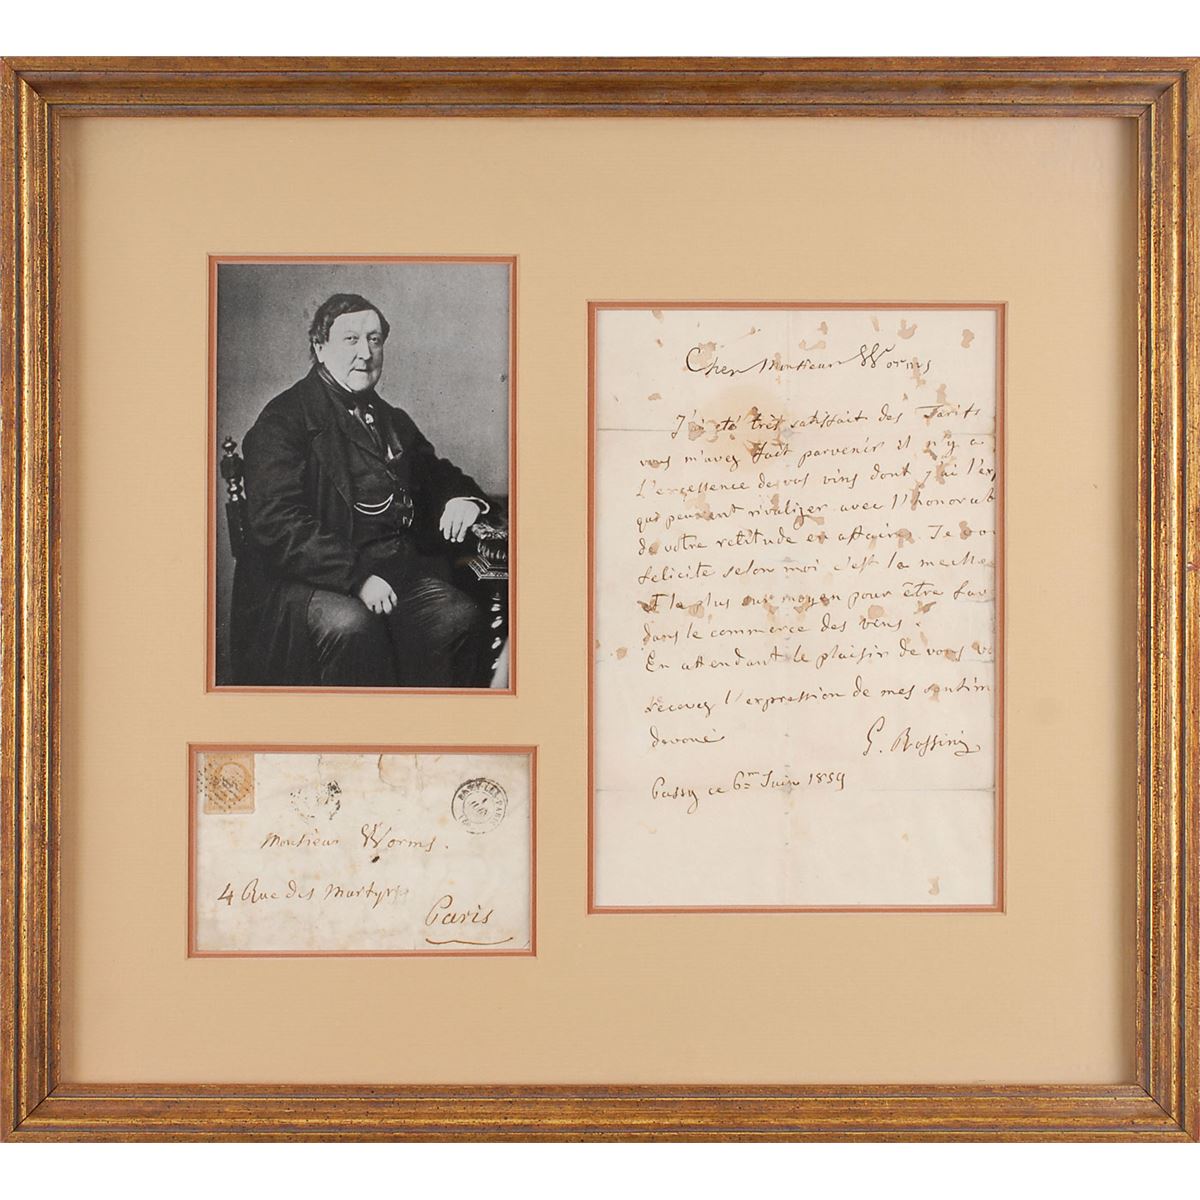 Cher Monsieur Worms
J'ai été très satisfait des Tarifs
vous m'avez fait parvenir il n'y a
L'excessence de vos vins dont j'ai l'ex
que peuvent rivalizer avec l'honorab
de votre retitude en affaires. Je vou
felicite selon moi c'est la meille
et le plus sur moyen pour être fav
dans le commerce des vins.
En attendant le plaisir de vous vo
recevez l'expression de mes sentim
devoué
G. Rossini
Passy ce 6m Juin 1859
PASSY-LES-PARIS
Monsieur Worms.
4 Rue des Martyrs
Paris